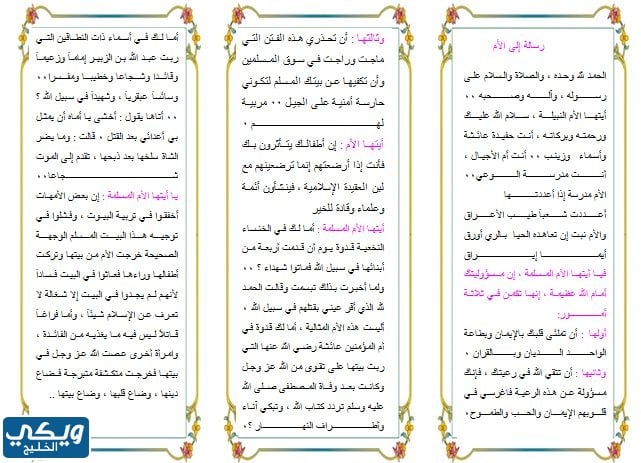 رسالة إلى الأم
الحمد لله وحده ، والصلاة والسلام على
رسوله ، وآله وصحبه ..
أيتها الأم النبيلة ، سلام الله عليك
ورحمته وبركاته ، أنت حفيدة عائشة
وأسماء وزينب .. أنت أم الأجيال ،
أنت مدرسة الوعي..
الأم مدرسة إذا أعددتها
أعددت شعباً طيب الأعراق
والأم نبت إن تعاهده الحيا بالري أورق
أيما إيراق
فيا أيتها الأم المسلمة ، إن مسؤوليتك
أمام الله عظيمة ، إنها تكمن في ثلاثة
أمور:
أولها : أن تملئي قلبك بالإيمان وبطاعة
الواحد الديان وبالقران .
وثانيها : أن تتقي الله في رعيتك ، فإنك
مسؤولة عن هذه الرعية فاغرسي في
قلوبهم الإيمان والحب والطموح.
وثالثها : أن تحذري هذه الفتن التي
ماجت وراجت في سوق المسلمين
وأن تكفيها عن بيتك المسلم لتكوني
حارسة أمنية على الجيل .. مربية
لهم .
أيتها الأم : إن أطفالك يتأثرون بك
فأنت إذا أرضعتهم إنما ترضعينهم مع
لبن العقيدة الإسلامية ، فينشأون أئمة
وعلماء وقادة للخير
أيتها الأم المسلمة : أما لك في الخنساء
النخعية قدوة يوم أن قدمت أربعة من
أبنائها في سبيل الله فماتوا شهداء ؟ ..
ولما أخبرت بذلك تبسمت وقالت الحمد
لله الذي أقر عيني بقتلهم في سبيل الله ،
أليست هذه الأم المثالية ، أما لك قدوة في
أم المؤمنين عائشة رضي الله عنها التي
ربت بيتها على تقوى من الله عز وجل
وكانت بعد وفاة المصطفى صلى الله
عليه وسلم تردد كتاب الله ، وتبكي آناء
وأطراف النهار ؟.
أما لك في أسماء ذات النطاقين التي
ربت عبد الله بن الزبير إماماً وزعيماً
وقائدا وشجاعا وخطيبا ومفسرا..
وسائساً عبقرياً ، وشهيداً في سبيل الله ؟
.. أتاها يقول : أخشى يا أماه أن يمثل
بي أعدائي بعد القتل ، قالت : وما يضر
الشاة سلخها بعد ذبحها ، تقدم إلى الموت
شجاعا..
يا أيتها الأم المسلمة : إن بعض الأمهات
أخفقوا في تربية البيوت ، وفشلوا في
توجيه هذا البيت المسلم الوجهة
الصحيحة خرجت الأم من بيتها وتركت
أطفالها وراءها فعاثوا في البيت فساداً
لأنهم لم يجدوا في البيت إلا شغالة لا
تعرف عن الإسلام شيئاً ، وأما فراغاً
قاتلاً ليس فيه ما يغذيه من الفائدة ،
وامرأة أخرى عصت الله عز وجل في
بيتها فخرجت متكشفة متبرجة فضاع
دينها ، وضاع قلبها ، وضاع بيتها ..
ويكي
الخليج